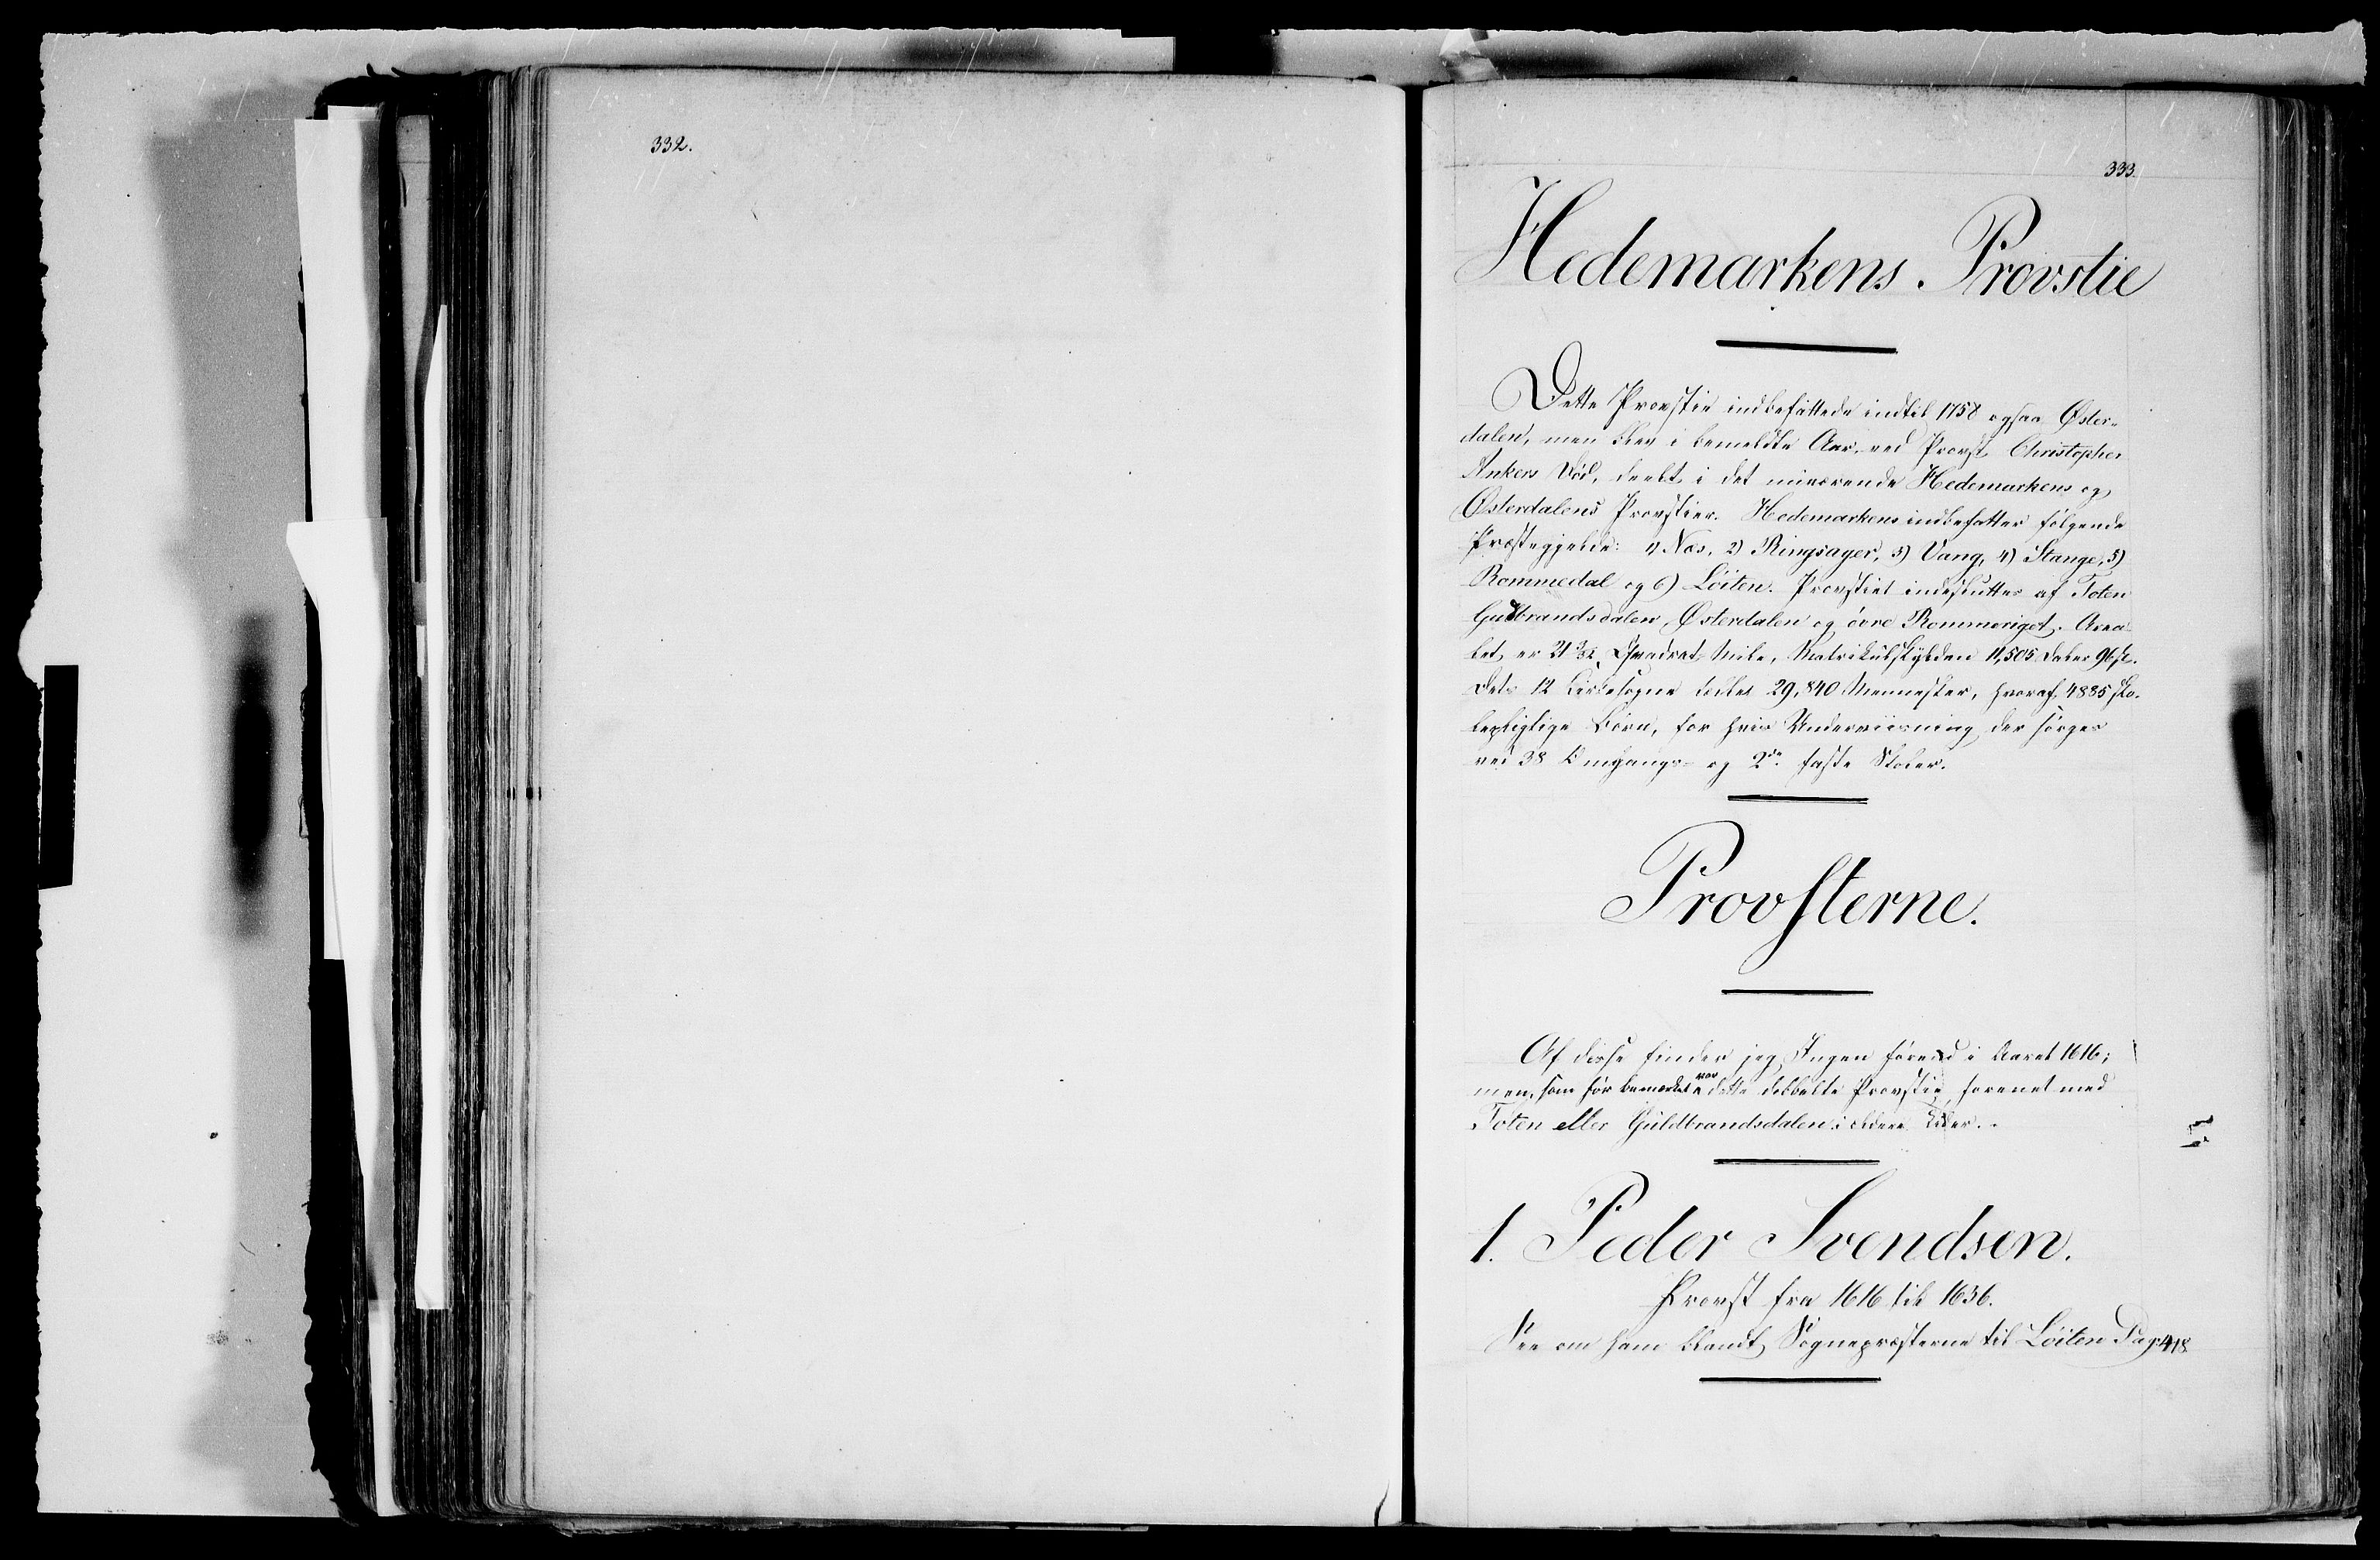 332.
333.
Hedemarkens Provstie
Dette Provstie indbefattede indtil 1758 ogsaa Øster-
dalen, men blev i bemeldte Aar, ved Provst Christopher
Ankers Død, deelt i det nuværende Hedemarkens og
Østerdalens Provstier. Hedemarkens indbefatter følgende
Præstegjelde: 1) Næs, 2) Ringsager, 3) Vang, 4) Stange, 5)
Rommedal og 6) Löiten. Provstiet indesluttes af Toten
Gudbrandsdalen, Østerdalen og övre Rommeriget. Area-
let er Qvadrat Mile, Matrikulskylden 11,505 Daler 96 ſk.
Dets 12 Kirkesogne tæller 29,840 Mennesker, hvoraf 4885 sko-
lepligtige Börn, for hvis Underviisning der sørges
ved 38 Omgangs- og 2de faste Skoler.
Provsterne.
Af disse finder jeg Ingen förend i Aaret 1616;
men, som før bemærket var dette dobbelte Provstie forenet med
Toten eller Guldbrandsdalen i ældere Tider.
1. Peder Svendsen.
Provst fra 1616 til 1636.
See om ham blandt Sognepræsterne til Löiten Pag. 418